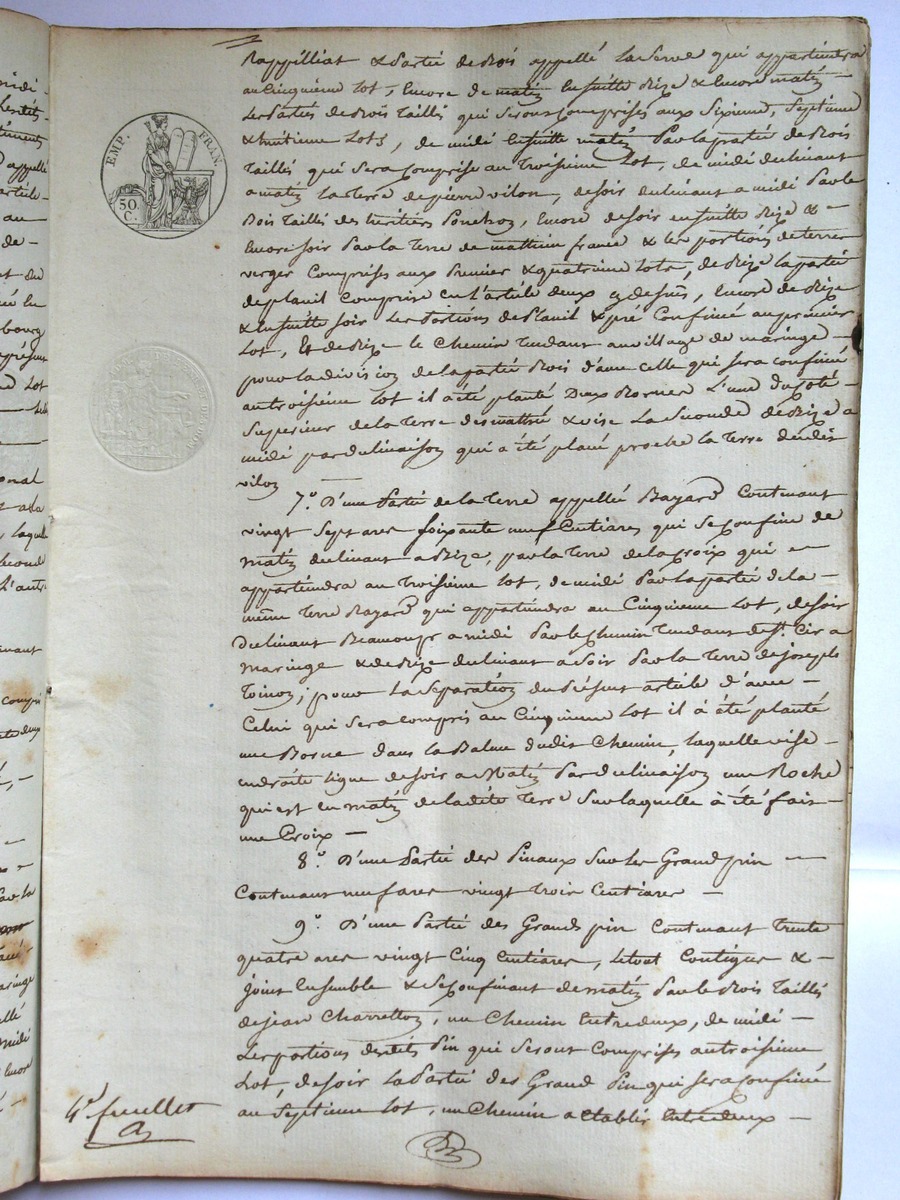 EMP. FRAN.
50. C.
Rappilliat & Partie de Bois appellé La Serve qui appartiendra
au Cinquième Lot, Encore de matin Ensuitte Bize & Encore matin —
Les Parties de Bois Taillés qui seront Comprises aux Sixieme, Septieme
& huitieme Lots, de midi Ensuitte matin Par la partie de Bois
Taillés, qui sera Comprise au Troisieme Lot, de midi déclinant
a matin la Terre de pierre vilon, de soir déclinant a midi Par le
Bois Taillé des heritiers Ponchon, Encore de soir ensuitte Bize & —
Encore soir Par la Terre de mathieu france & les portions de terre
verger Comprises aux Premier & quatrieme Lots, de Bize la partie
de planil Comprise en L'article deux cy dessus, Encore de Bize
& Ensuitte soir Les Portions de Planil & pré Confiné au premier
Lot, Et de Bize le Chemin Tendant au village de maringe —
pour la division de la partie Bois d'avec celle qui sera confiné
au troisieme Lot il a été planté Deux Bornes L'une du Coté —
Superieur de la Terre des & vise La Seconde de Bize a
midi par déclinaison qui a été placé proche la Terre dudit
vilon —
7.° D'une Partie de la Terre appellée Bayard Contenant
vingt Sept ares soixante neuf Centiares qui se Confine de
matin déclinant a Bize, par la Terre de la Croix qui —
appartiendra au Troisieme Lot, de midi Par la partie de la —
même Terre Bayard qui appartiendra au Cinquieme Lot, de soir
déclinant Beaucoup a midi Par le Chemin Tendant de St. Cir a
Maringe & de Bize déclinant a Soir Par la Terre de joseph
Toinon; pour La Separation du Présent article d'avec —
Celui qui sera compris au Cinquieme Lot il a été planté
une Borne dans la Balme dudit Chemin, laquelle vise —
en droite Ligne de soir a Matin Par déclinaison une Roche
qui est en matin de la dite Terre Sur laquelle a été fait —
une Croix —
8.° D'une Partie des Pinaux Sur les Grand pin —
Contenant neuf ares vingt Trois Centiares —
9.° D'une Partie des Grands pin Contenant Trente
quatre ares vingt Cinq Centiares, le tout Contigus & —
joint Ensemble & se Confinant de matin Par le Bois Taillés
de jean Charretton, un Chemin Entredeux, de midi —
Les portions desdits Pin qui seront Comprises au troisieme
Lot, de soir La Partie des Grand Pin qui sera Confiné
au Septieme Lot, un Chemin a établir Entredeux —
4e feuillet